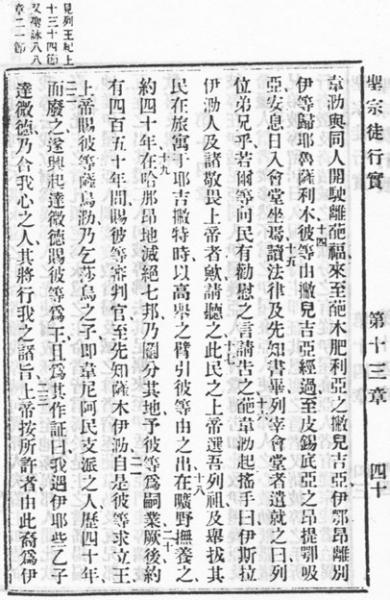 聖宗徒行實 第十三章 四十
韋泐與同人開駛離葩福、來至葩木肥利亞之撇兒吉亞、伊鄂昂離別
伊等歸耶魯薩利木、十四彼等由撇兒吉亞經過至皮錫底亞之昂提鄂吸
亞、安息日入會堂坐焉、十五讀法律及先知書畢、列宰會堂者遣就之曰、列
位弟兄乎、若爾等向民有勸慰之言、請告之、十六葩韋泐起搖手曰、伊斯拉
伊泐人及諸敬畏上帝者歟、請聽之、十七此民之上帝、選吾列祖、及舉拔其
民在旅寓于耶吉撇特時、以高舉之臂、引彼等由之出、十八在曠野撫養之
約四十年、十九在哈那昂地滅絕七邦、乃鬮分其地、予彼等爲嗣業、二十厥後約
有四百五十年間、賜彼等審判官、至先知薩木伊泐、二一自是彼等求立王、
上帝賜彼等薩烏泐、乃乞莎烏之子、即韋尼阿民支派之人、歷四十年、
二二而廢之、遂興起達微德、賜彼等爲王、且爲其作証曰、我遇伊耶些乙子
達微德、乃合我心之人、其將行我之諸旨、二三上帝按所許者、由此裔爲伊
見列王紀上
十三十四節
又聖詠八八
章二一節